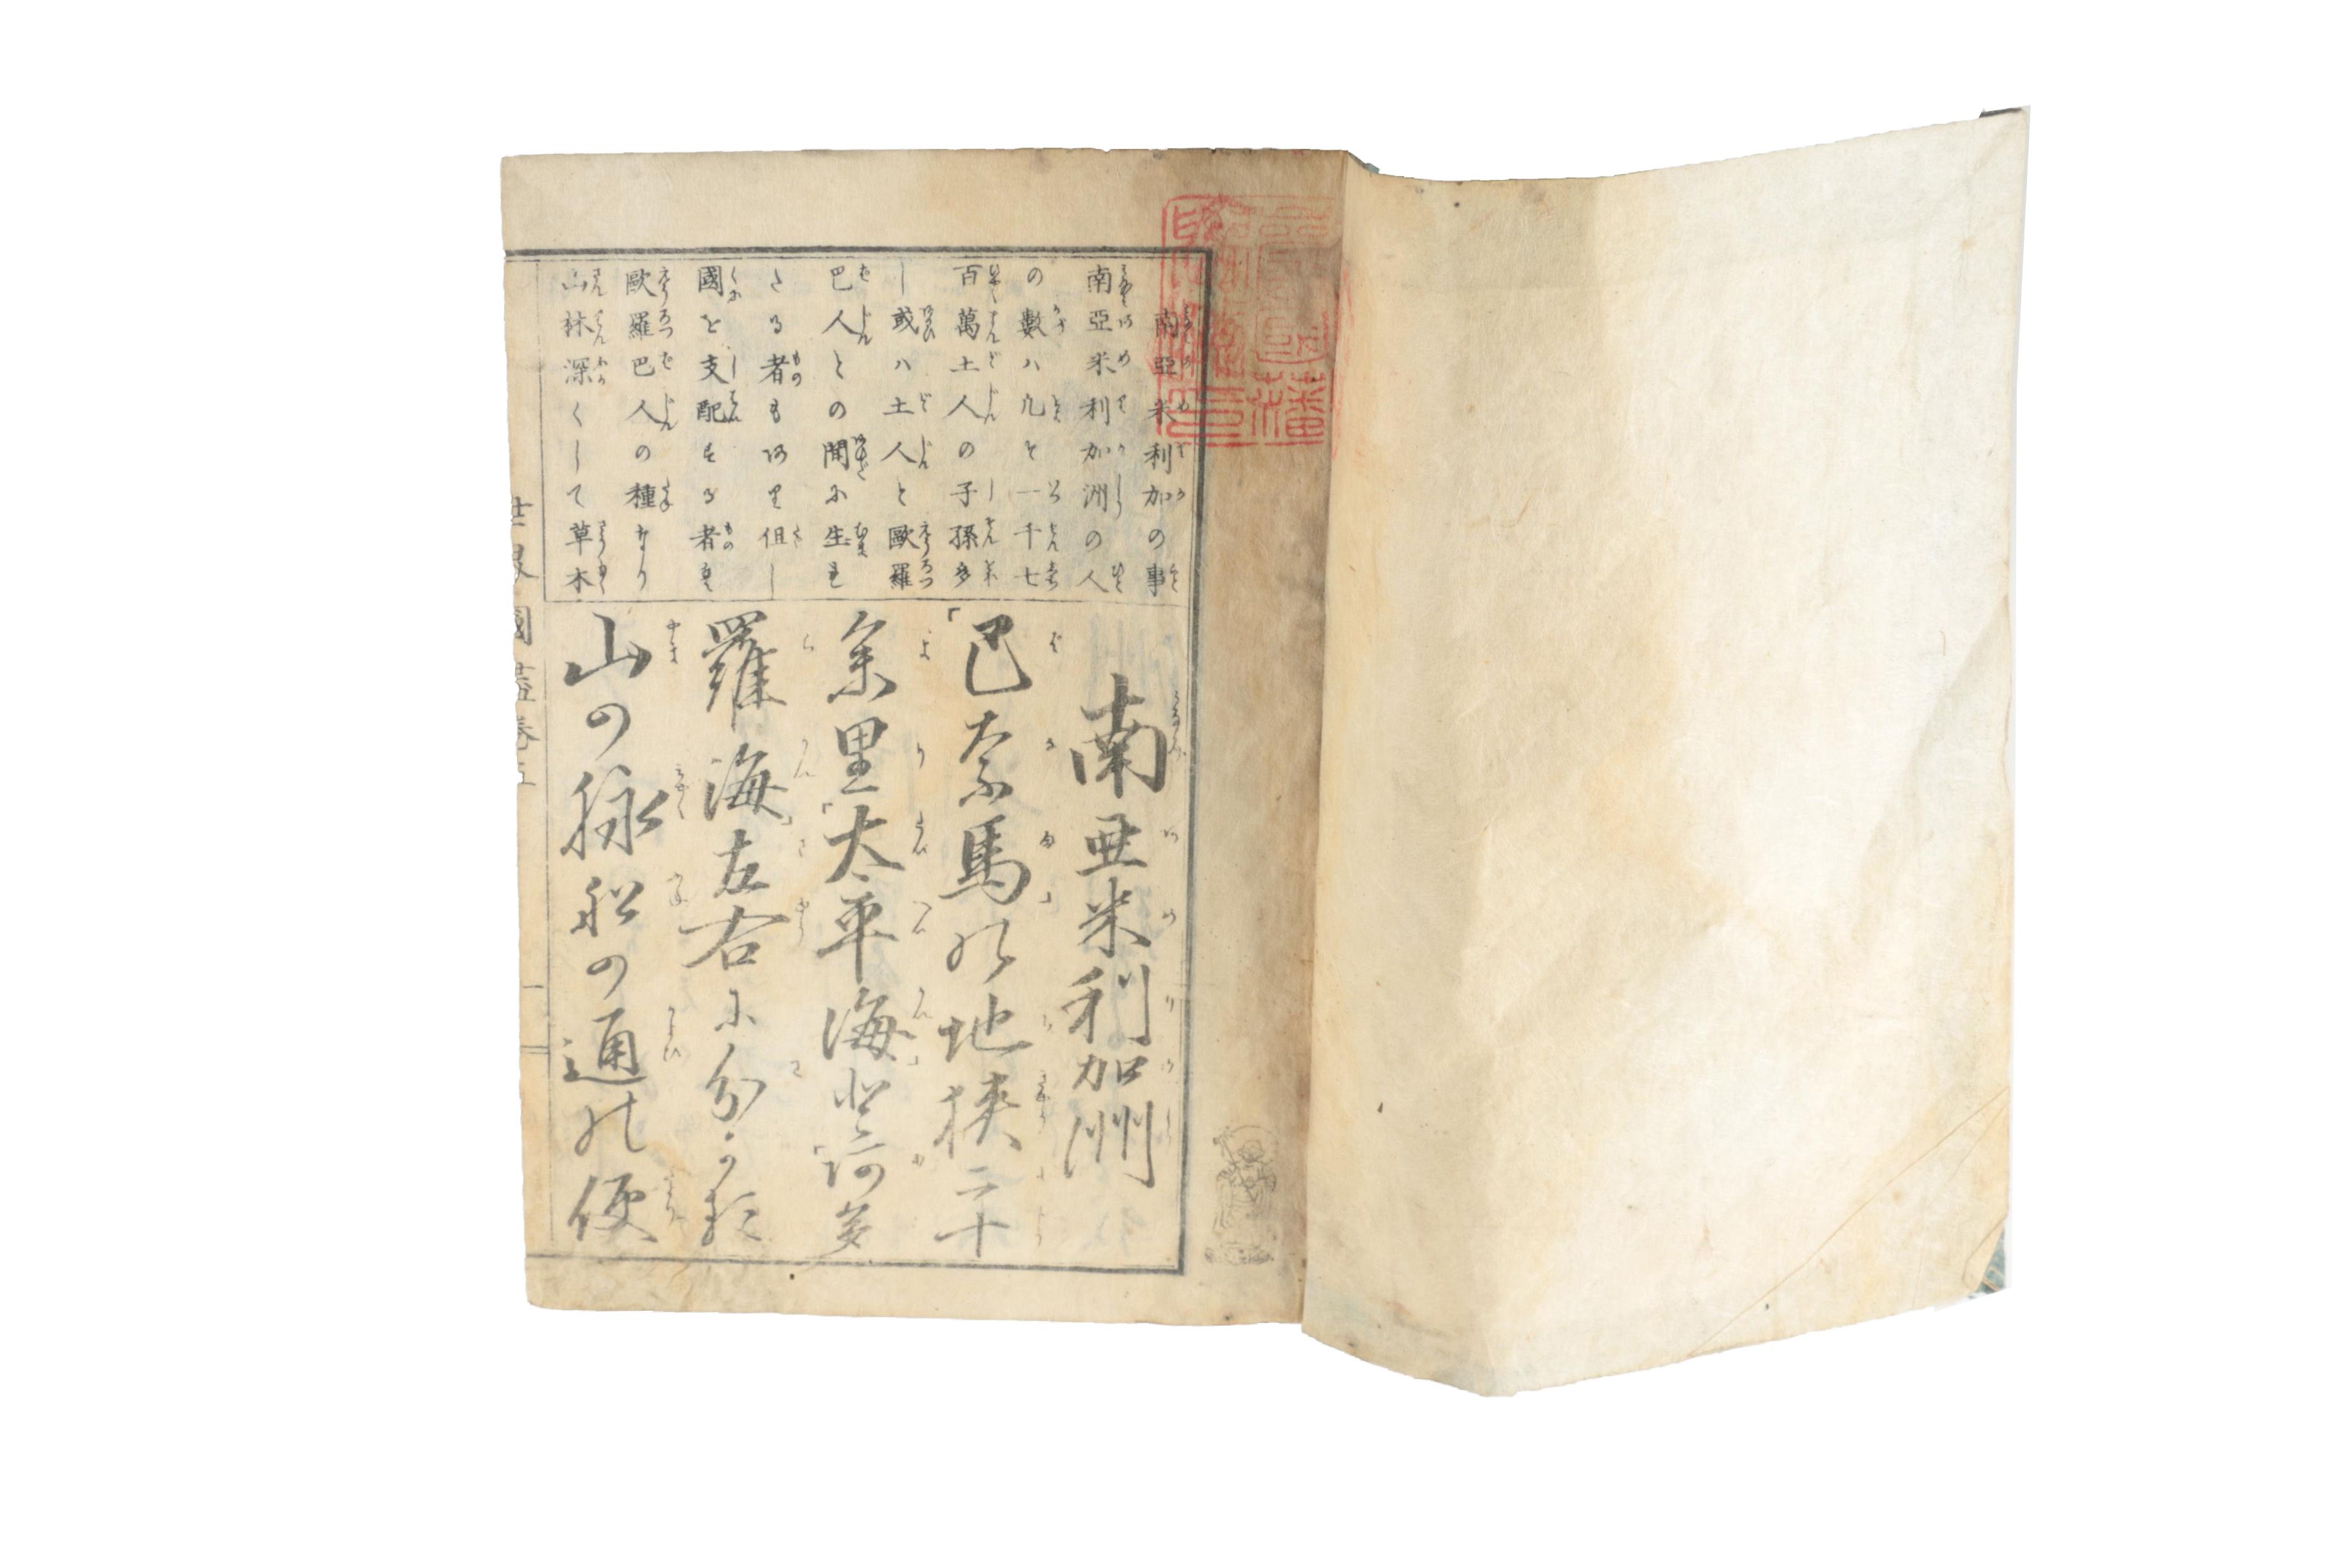 南亞米利加の事
南亞米利加洲の人
の數ハ凡そ一千七
百萬土人の子孫多
し或ハ土人と歐羅
巴人との間に生れ
たる者もあり但し
國を支配する者ハ
歐羅巴人の種なり
山林深くして草木
南亜米利加洲
「巴奈馬」の地狭二十
余里「太平海」と「阿多
羅海」左右に分つ
山の脉船の通の便
世界國盡巻五
一